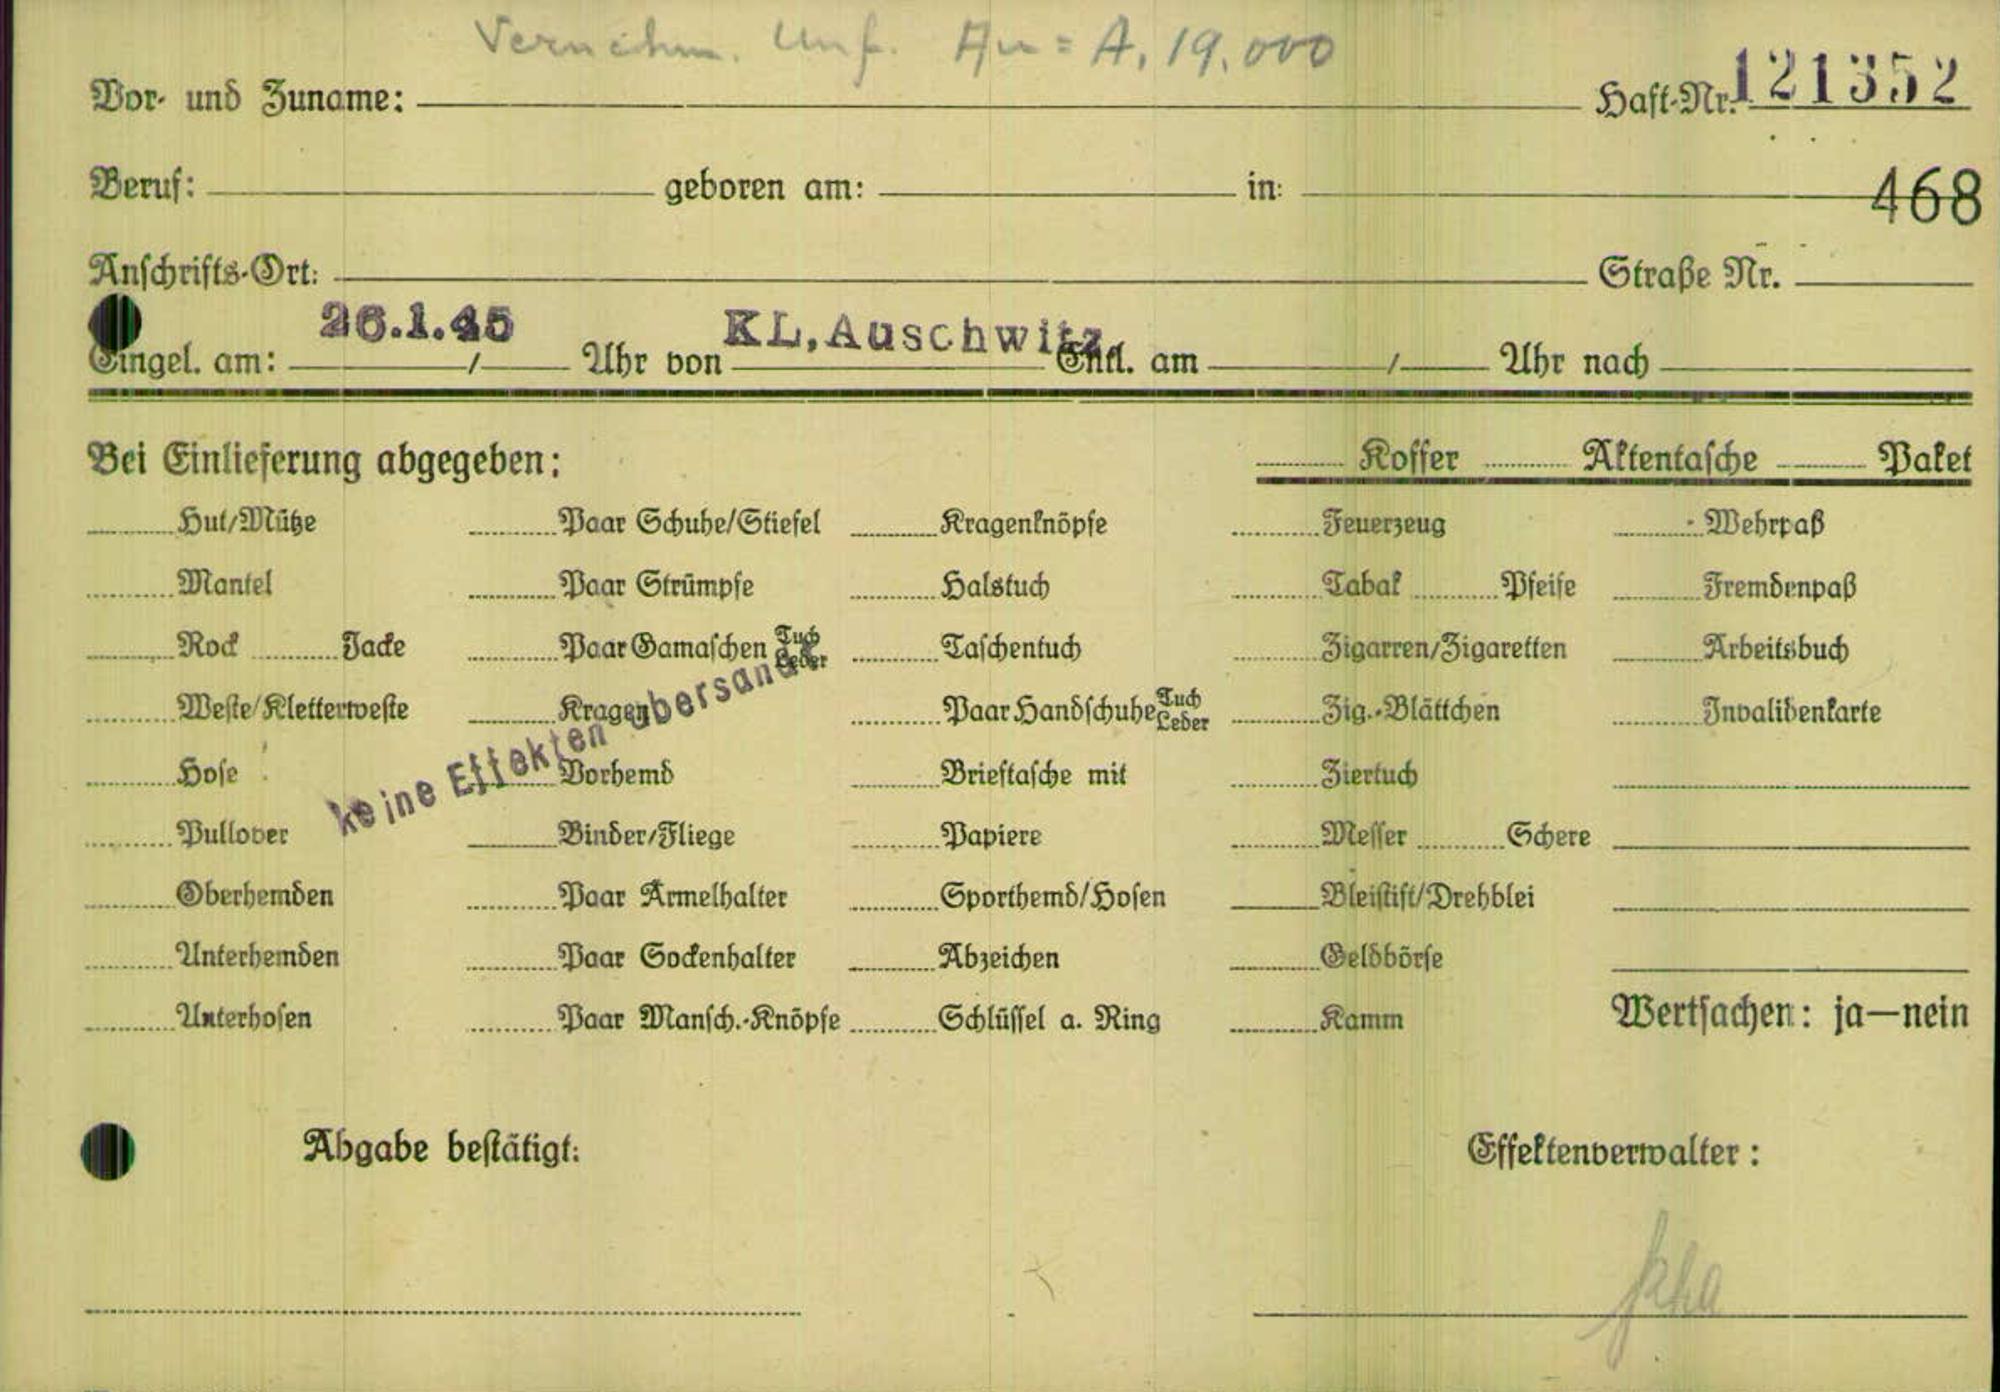 Vernehm. Unf. Au = A, 19,000
Vor- und Zuname: Haft-Nr. 121352
Beruf: geboren am: in: 468
Anschrifts-Ort: Straße Nr.
26.1.45 KL, Auschwitz
Eingel. am: / Uhr von Entl. am / Uhr nach
Bei Einlieferung abgegeben: Koffer Aktentasche Paket
Hut/Mütze Paar Schuhe/Stiefel Kragenknöpfe Feuerzeug Wehrpaß
Mantel Paar Strümpfe Halstuch Tabak Pfeife Fremdenpaß
Rock Jacke Paar Gamaschen Tuch Leder Taschentuch Zigarren/Zigaretten Arbeitsbuch
Weste/Kletterweste Kragen Paar Handschuhe Tuch Leder Zig.-Blättchen Invalidenkarte
keine Effekten übersandt
Hose Vorhemd Brieftasche mit Ziertuch
Pullover Binder/Fliege Papiere Messer Schere
Oberhemden Paar Ärmelhalter Sporthemd/Hosen Bleistift/Drehblei
Unterhemden Paar Sockenhalter Abzeichen Geldbörse
Unterhosen Paar Mansch.-Knöpfe Schlüssel a. Ring Kamm Wertsachen: ja—nein
Abgabe bestätigt: Effektenverwalter: